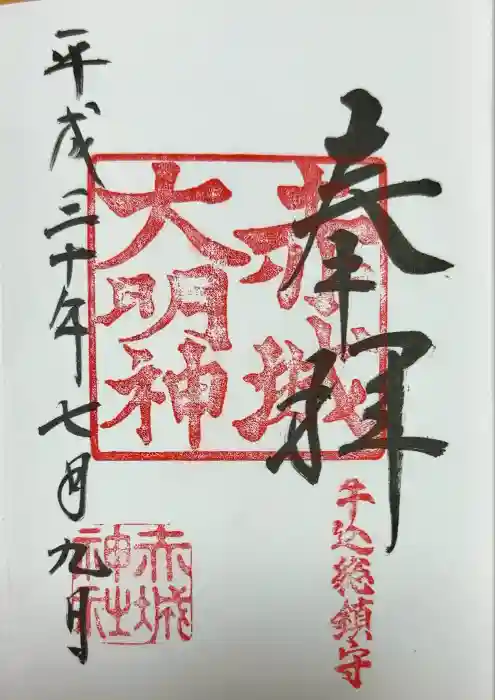 奉拝
牛込総鎮守
赤城
大明神
赤城
神社
平成三十年七月九月